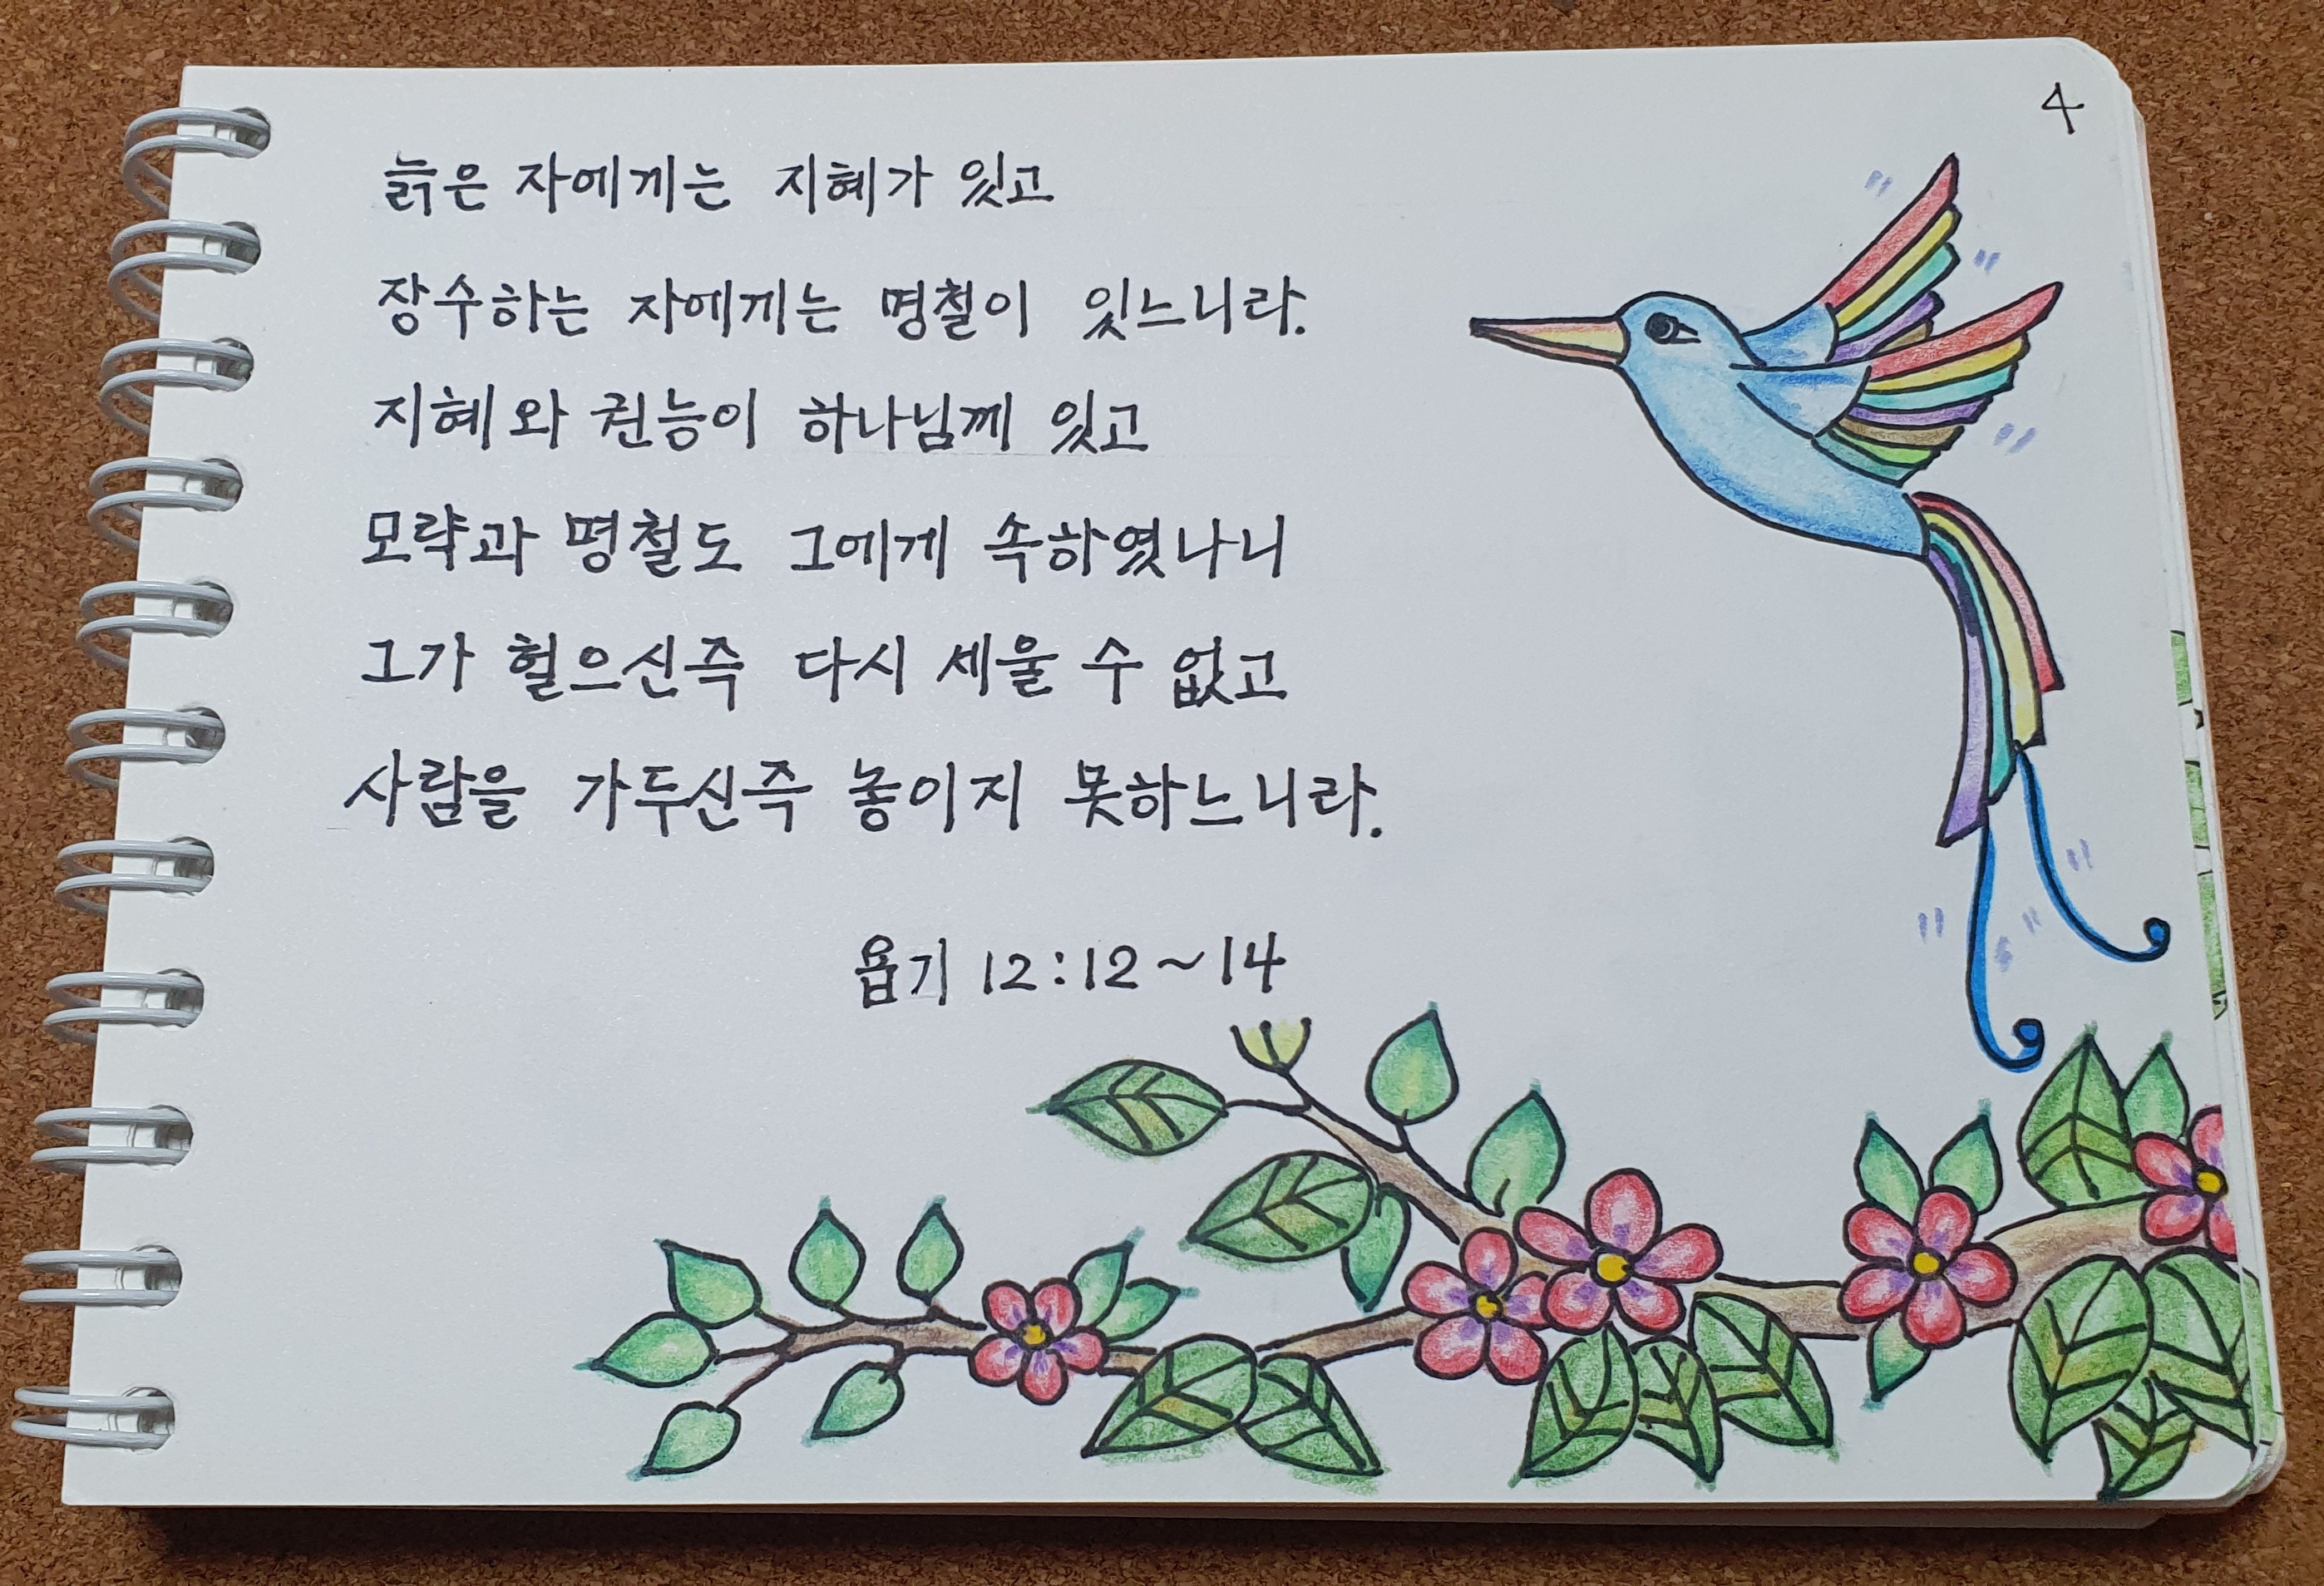 4
늙은 자에게는 지혜가 있고
장수하는 자에게는 명철이 있느니라.
지혜와 권능이 하나님께 있고
모략과 명철도 그에게 속하였나니
그가 헐으신즉 다시 세울 수 없고
사람을 가두신즉 놓이지 못하느니라.
욥기 12:12~14